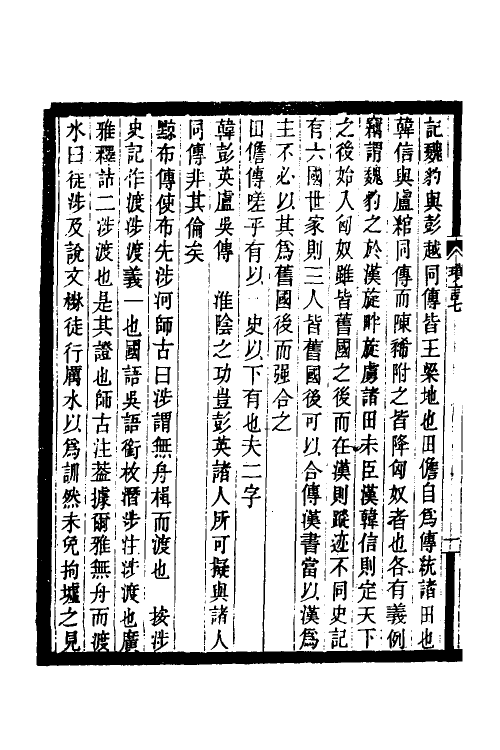 記魏豹與彭越同傳皆王梁地也田儋自爲傳統諸田也
韓信與盧綰同傳而陳豨附之皆降匈奴者也各有義例
竊謂魏豹之於漢旋畔旋虜諸田未臣漢韓信則定天下
之後始入匈奴雖皆舊國之後而在漢則蹤迹不同史記
有六國世家則三人皆舊國後可以合傳漢書當以漢爲
主不必以其爲舊國後而强合之
田儋傳嗟乎有以　史以下有也夫二字
韓彭英盧吳傳　淮陰之功豈彭英諸人所可擬與諸人
同傳非其倫矣
黥布傳使布先涉河師古曰涉謂無舟楫而渡也　按涉
史記作渡涉渡義一也國語吳語銜枚潛涉注涉渡也廣
雅釋詁二涉渡也是其證也師古注葢據爾雅無舟而渡
水曰徒涉及說文㴇徒行厲水以爲訓然未免拘墟之見